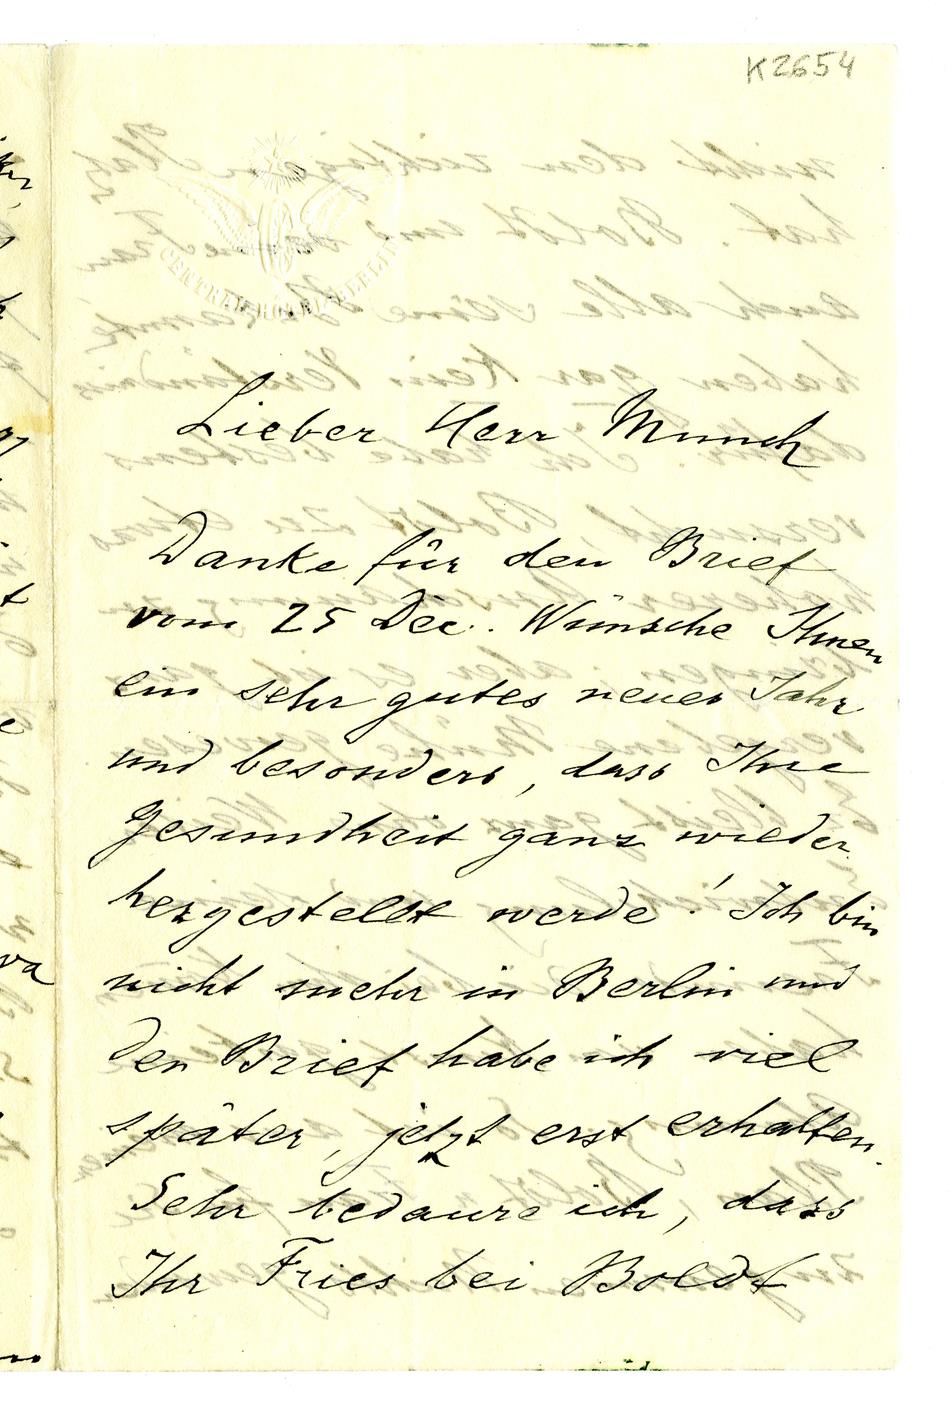 K2654
Lieber Herr Munch
Danke für den Brief
vom 25 Dec. Wünsche Ihnen
ein sehr gutes neues Jahr
und besonders, dass Ihre
Gesundheit ganz wieder
hergestellt werde! Ich bin
nicht mehr in Berlin und
den Brief habe ich viel
später, jetzt erst erhalten.
Sehr bedaure ich, dass
Ihr Fries bei Boldt